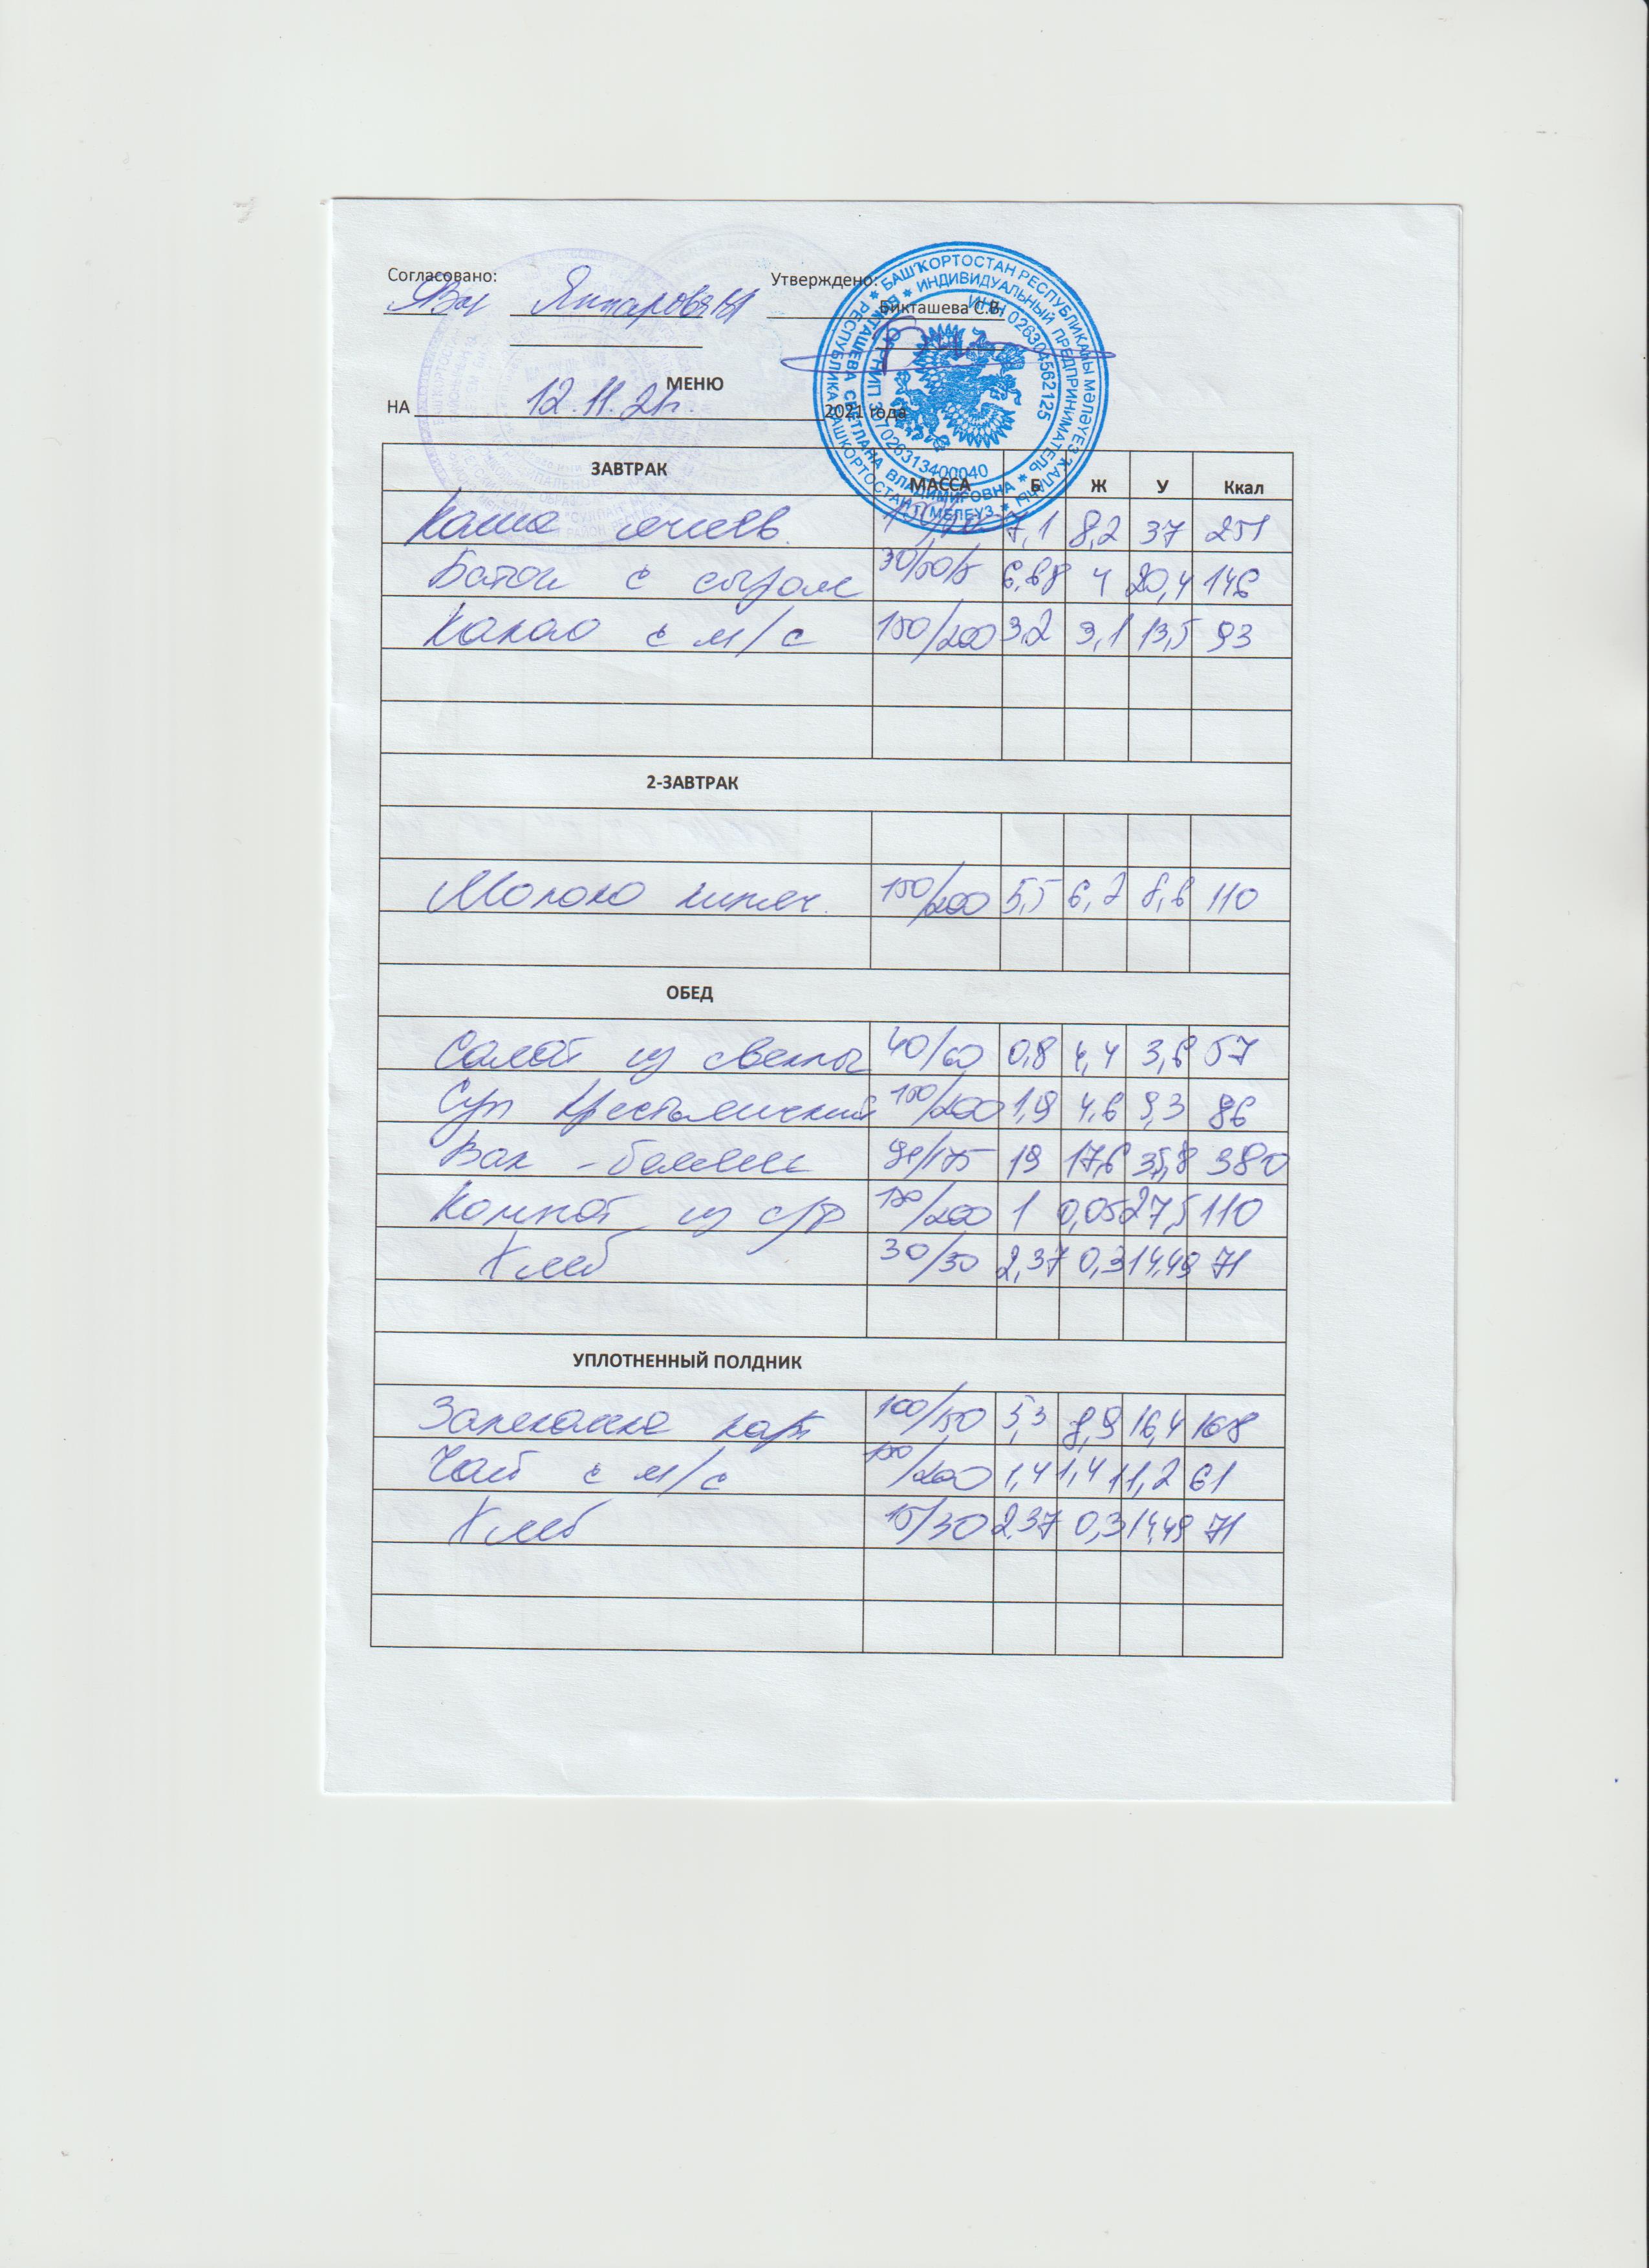 Согласовано: Утверждено:
Янтарова Бикташева С.В.
МЕНЮ
НА 12.11.21г. 2021 года
БАШҠОРТОСТАН РЕСПУБЛИКАҺЫ МӘЛӘҮЕЗ ҠАЛАҺЫ
РЕСПУБЛИКА БАШКОРТОСТАН Г. МЕЛЕУЗ
ИНДИВИДУАЛЬНЫЙ ПРЕДПРИНИМАТЕЛЬ
БИКТАШЕВА СВЕТЛАНА ВЛАДИМИРОВНА
ИНН 026304562125
ОГРНИП 317026313400040
ЗАВТРАК МАССА Б Ж У Ккал
Каша ячнев. 7,1 8,2 37 251
Батон с сыром 30/50/5 6,68 4 20,4 146
Какао с м/с 150/200 3,2 3,1 13,5 93
2-ЗАВТРАК
Молоко кипяч. 150/200 5,5 6,2 8,6 110
ОБЕД
Салат из свеклы 40/60 0,8 4,4 3,6 57
Суп Крестьянский 150/200 1,9 4,6 9,3 86
Вак - балиш 19 17,6 35,8 380
Компот из с/ф 150/200 1 0,05 27,5 110
Хлеб 30/30 2,37 0,3 14,49 71
УПЛОТНЕННЫЙ ПОЛДНИК
Запеканка карт 100/150 5,3 8,9 16,4 168
Чай с м/с 150/200 1,4 1,4 11,2 61
Хлеб 15/30 2,37 0,3 14,49 71